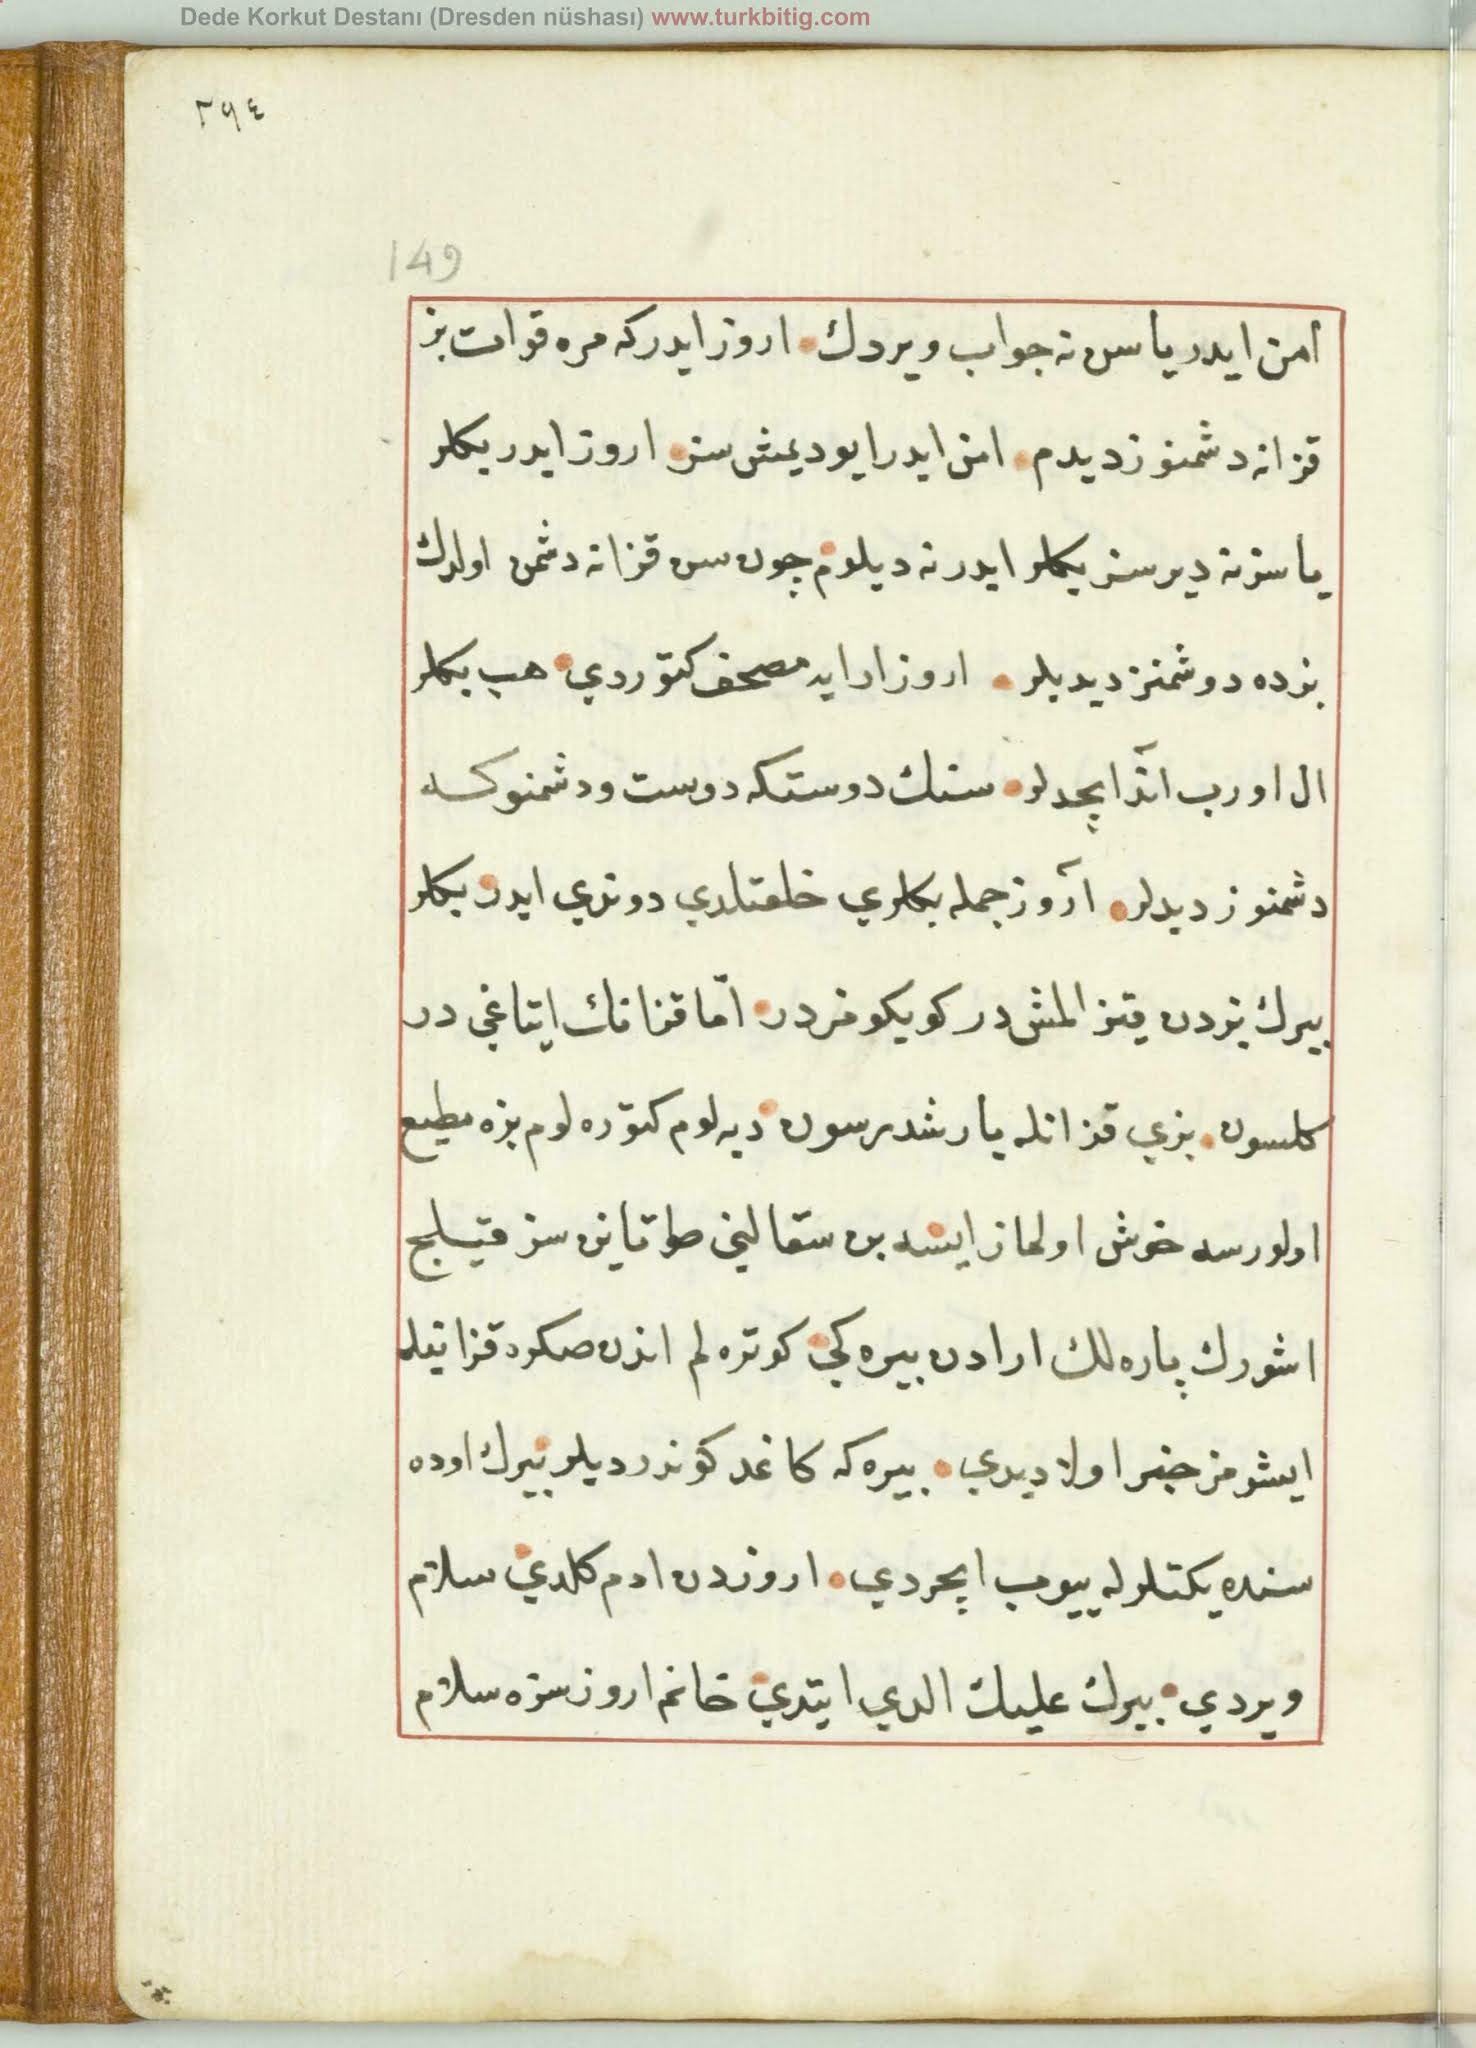 Dede Korkut Destanı (Dresden nüshası) www.turkbitig.com
٢٩٤
149
امن ايدر يا سن نه جواب ويردك • اروز ايدركه مره قوات بز
قزانه دشمنوز ديدم • امن ايدر ايو ديمش سز • اروز ايدر بكلر
يا سز نه ديرسز بكلر ايدر نه ديلوم • چون سن قزانه دشمن اولدك
بزده دوشمنز ديديلر • اروز ارايه مصحف كتوردي • هب بكلر
ال اورب اند ايچدلر • سنك دوستكه دوست ودشمنوكه
دشمنوز ديدلر • اروز جمله بكلري خلعتلدي دوندي ايدر • بكلر
بيرك بزدن قيز المش در كويكومز در • اما قزانك ايناغي در
كلسون • بزي قزانله بارشدرسون • ديه لوم كتوره لوم بزه مطيع
اولورسه خوش اولماز ايسه • بن سقالين طوتاين سز قيلج
اشورك پاره لك ارادن بيره كي • كوتره لم اندن صكره قزانيله
ايشومز خير اولا ديدي • بيره كه كاغد كوندرديلر • بيرك اوده
سنده يكتلرله ييوب ايچردي • اروزدن ادم كلدي • سلام
ويردي • بيرك عليك الدي ايتدي • خانم اروز سزه سلام